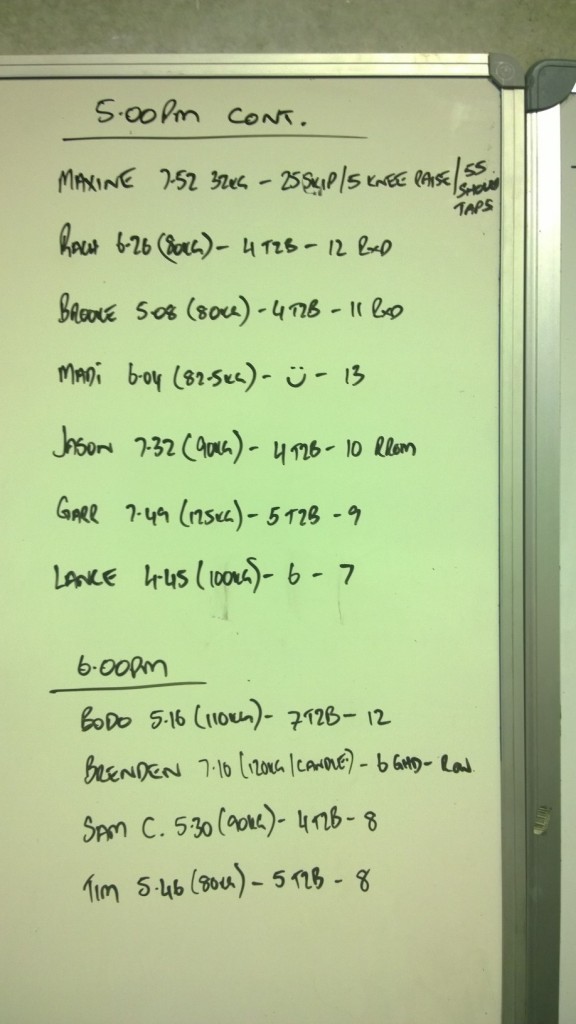 5.00PM CONT.
MAXINE 7.52 32KG - 25 SKIP/5 KNEE RAISE/55
SHOULD
TAPS
RACH 6.26 (80KG) - 4 T2B - 12 RXD
BROOKE 5.08 (80KG) - 4 T2B - 11 RXD
MADi 6.04 (82.5KG) - - 13
JASON 7.32 (90KG) - 4 T2B - 10 RROM
GARR 7.49 (125KG) - 5 T2B - 9
LANCE 4.45 (100KG) - 6 - 7
6.00PM
BODO 5.16 (110KG) - 7 T2B - 12
BRENDEN 7.10 (120KG/CANDLE) - 6 GHD - ROW
SAM C. 5.30 (90KG) - 4 T2B - 8
TIM 5.46 (80KG) - 5 T2B - 8